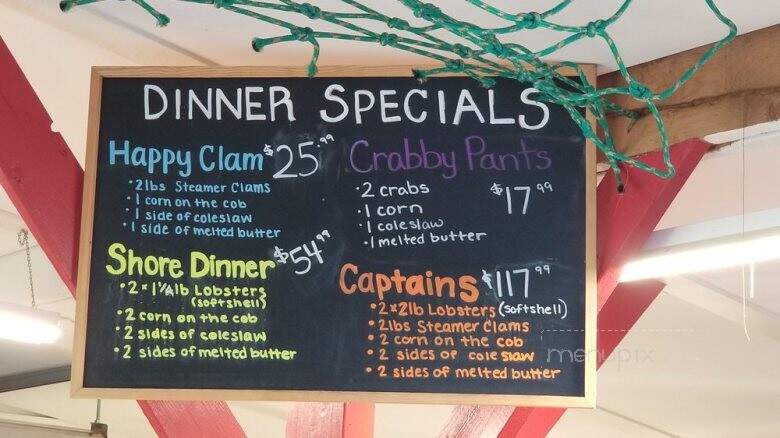 DINNER SPECIALS
Happy Clam $25.99
• 2lbs Steamer Clams
• 1 corn on the cob
• 1 side of coleslaw
• 1 side of melted butter
Crabby Pants
$17.99
• 2 crabs
• 1 corn
• 1 coleslaw
• 1 melted butter
Shore Dinner $54.99
• 2 x 1 1/4 lb Lobsters
(softshell)
• 2 corn on the cob
• 2 sides of coleslaw
• 2 sides of melted butter
Captains $117.99
• 2x2lb Lobsters (softshell)
• 2lbs Steamer Clams
• 2 corn on the cob
• 2 sides of coleslaw
• 2 sides of melted butter
menupix